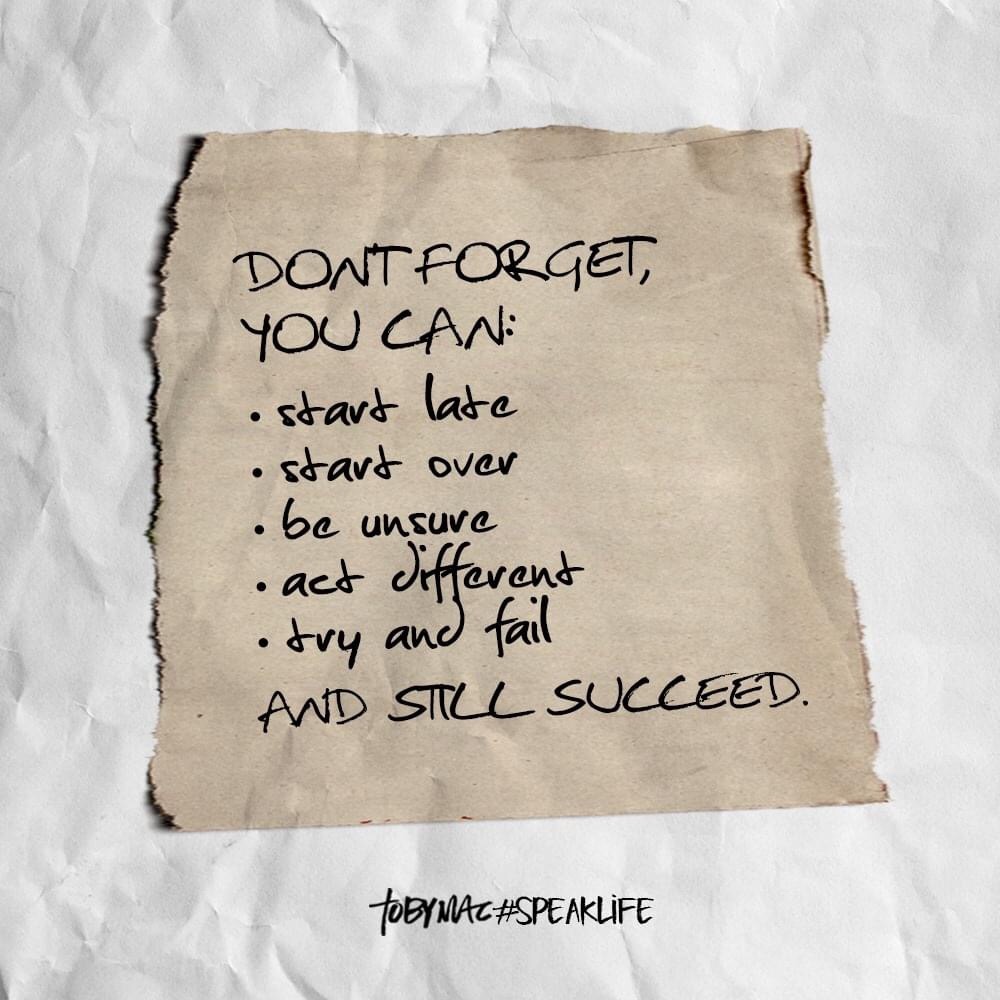 DONT FORGET,
YOU CAN:
• start late
• start over
• be unsure
• act different
• try and fail
AND STILL SUCCEED.
TOBYMAC #SPEAKLIFE